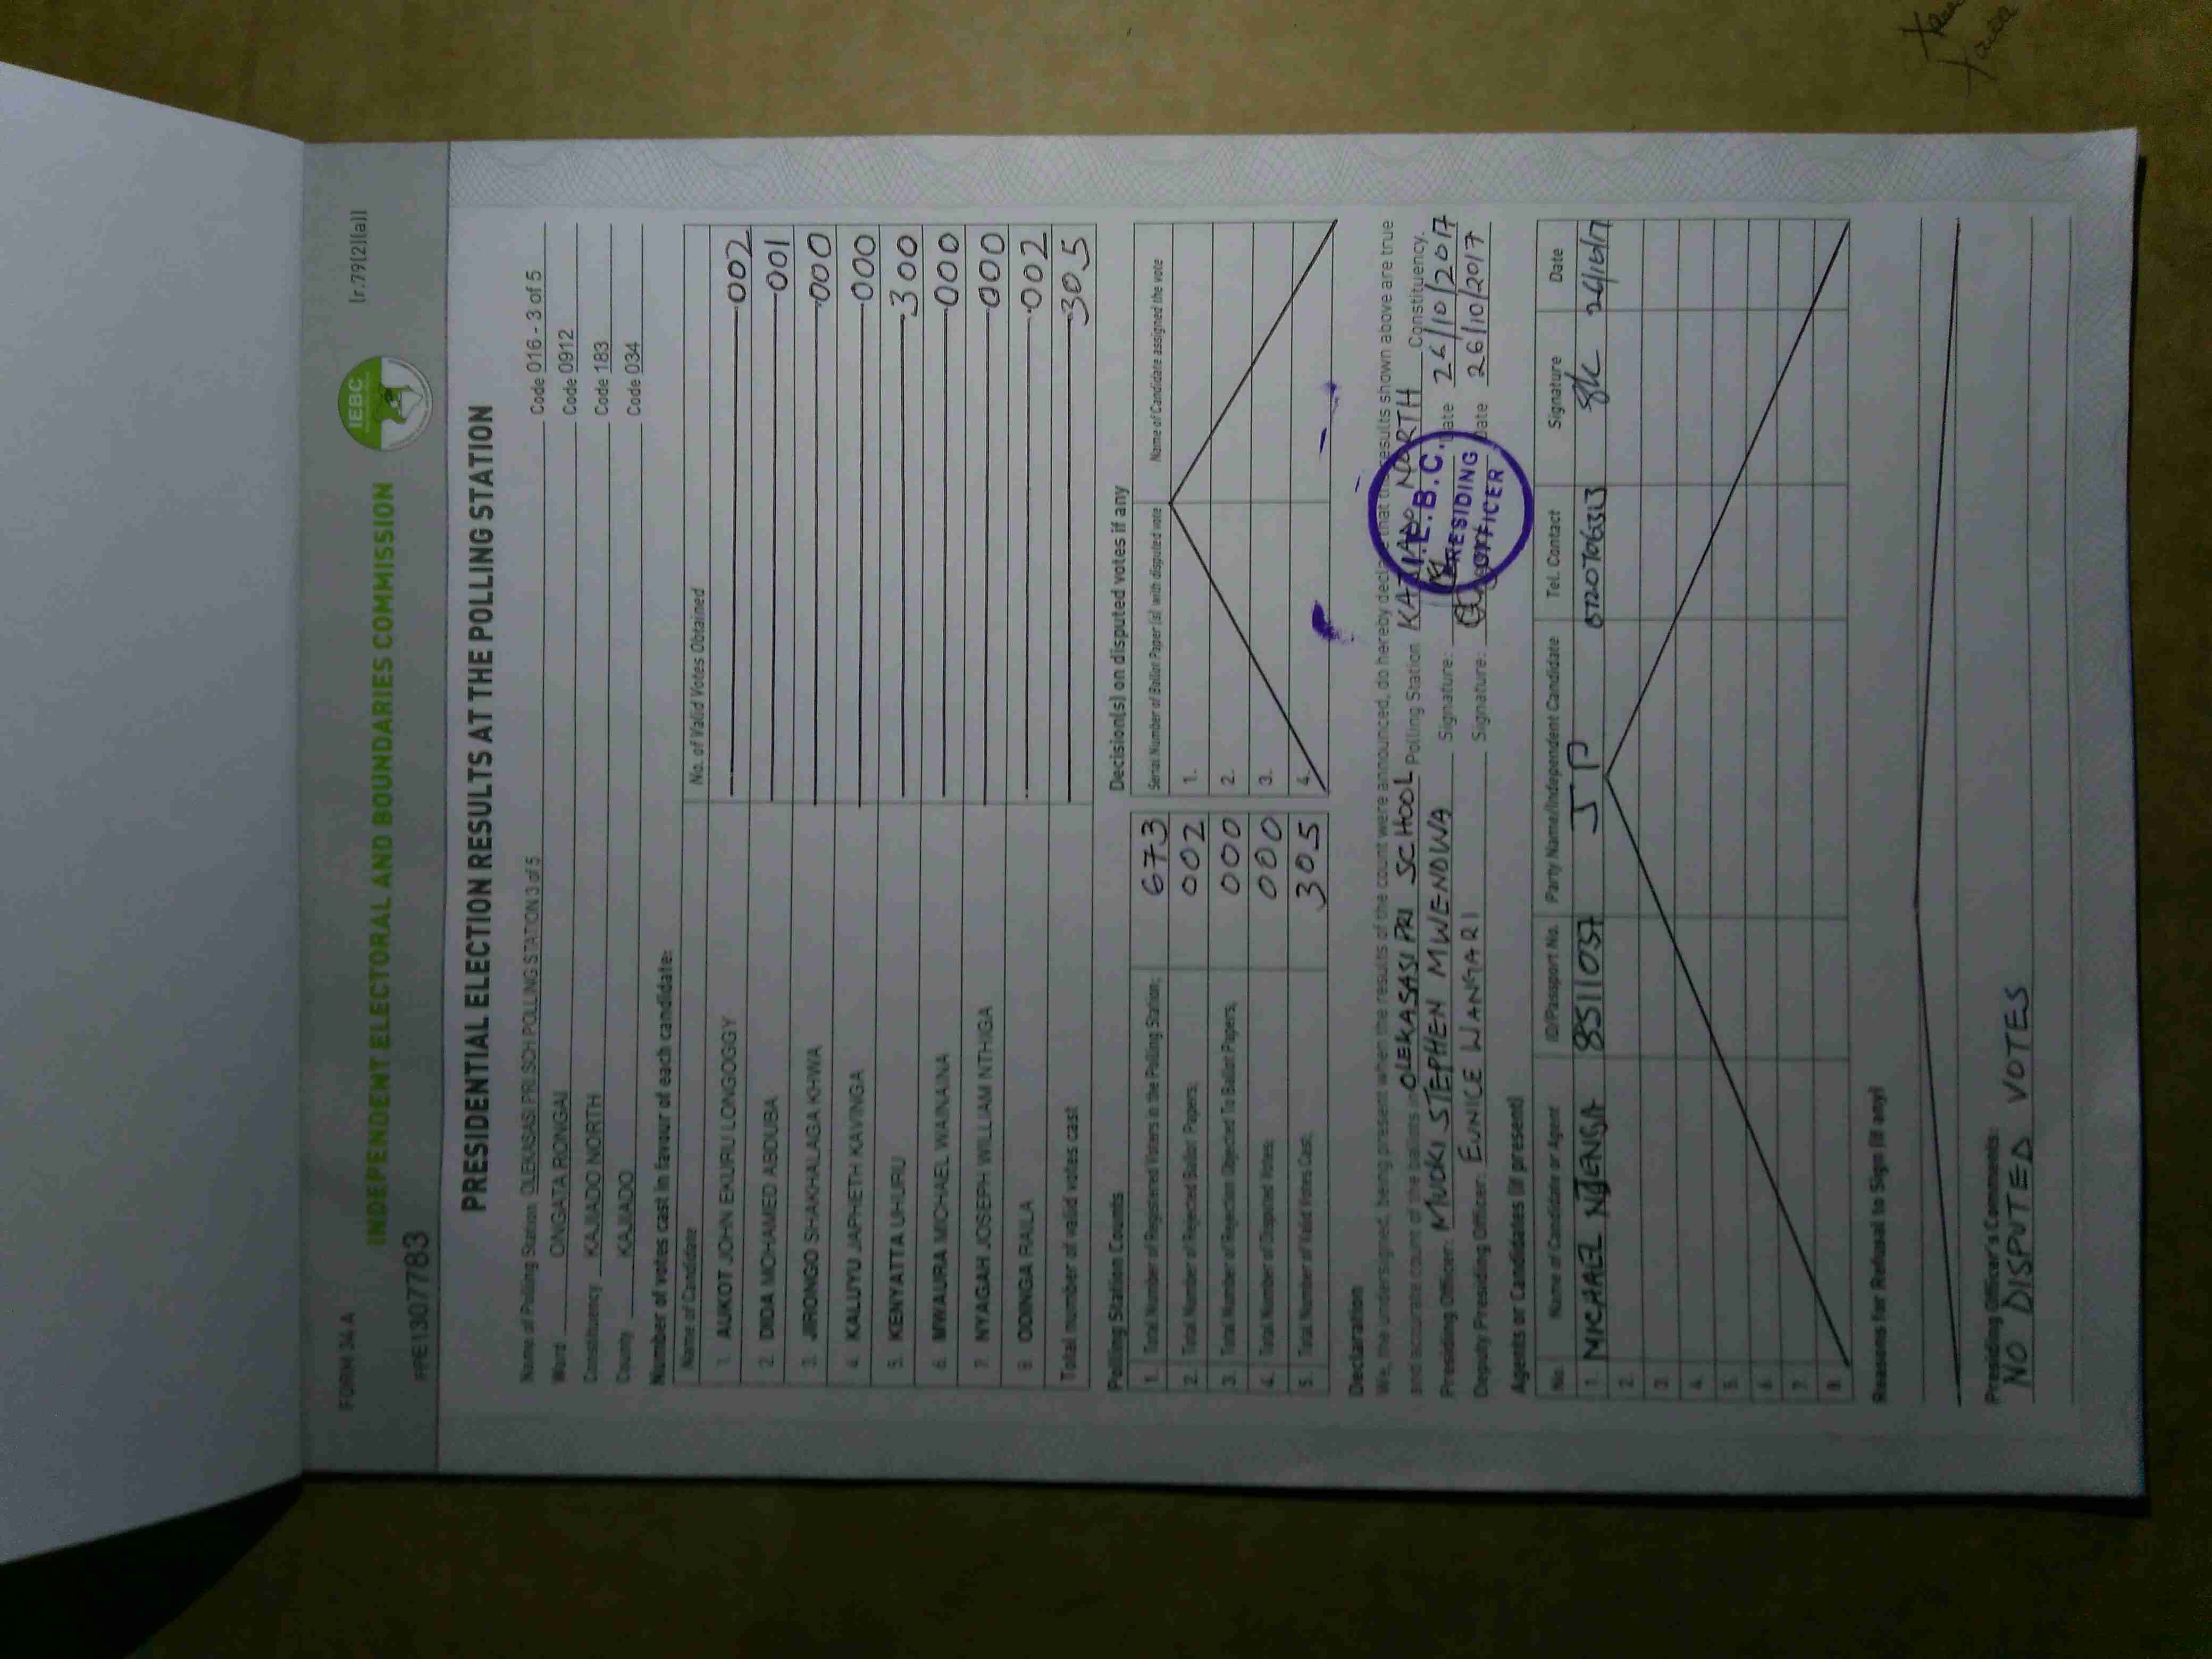 FORM 34 A
INDEPENDENT ELECTORAL AND BOUNDARIES COMMISSION
IEBC
[r.79(2)(a)]
PRE1307783
PRESIDENTIAL ELECTION RESULTS AT THE POLLING STATION
Name of Polling Station OLEKASASI PRI SCH POLLING STATION 3 of 5 Code 016 - 3 of 5
Ward ONGATA RONGAI Code 0912
Constituency KAJIADO NORTH Code 183
County KAJIADO Code 034
Number of votes cast in favour of each candidate:
Name of Candidate No. of Valid Votes Obtained
1. AUKOT JOHN EKURU LONGOGGY 002
2. DIDA MOHAMED ABDUBA 001
3. JIRONGO SHAKHALAGA KHWA 000
4. KALUYU JAPHETH KAVINGA 000
5. KENYATTA UHURU 300
6. MWAURA MICHAEL WAINAINA 000
7. NYAGAH JOSEPH WILLIAM NTHIGA 000
8. ODINGA RAILA 002
Total number of valid votes cast 305
Polling Station Counts
1. Total Number of Registered Voters in the Polling Station; 673
2. Total Number of Rejected Ballot Papers; 002
3. Total Number of Rejection Objected To Ballot Papers; 000
4. Total Number of Disputed Votes; 000
5. Total Number of Valid Votes Cast; 305
Decision(s) on disputed votes if any
Serial Number of Ballot Paper (s) with disputed vote Name of Candidate assigned the vote
1.
2.
3.
4.
Declaration
We, the undersigned, being present when the results of the count were announced, do hereby declare that the results shown above are true
and accurate count of the ballots in OLEKASASI PRI SCHOOL Polling Station KAJIADO NORTH Constituency.
Presiding Officer: MUOKI STEPHEN MWENDWA Signature: Date 26/10/2017
Deputy Presiding Officer: EUNICE WANGARI Signature: Date 26/10/2017
I.E.B.C.
PRESIDING
OFFICER
Agents or Candidates (if present)
No. Name of Candidate or Agent ID/Passport No. Party Name/Independent Candidate Tel. Contact Signature Date
1. MICHAEL NJENGA 8511037 JP 26/10/17
2.
3.
4.
5.
6.
7.
8.
Reasons for Refusal to Sign (if any)
Presiding Officer's Comments:
NO DISPUTED VOTES